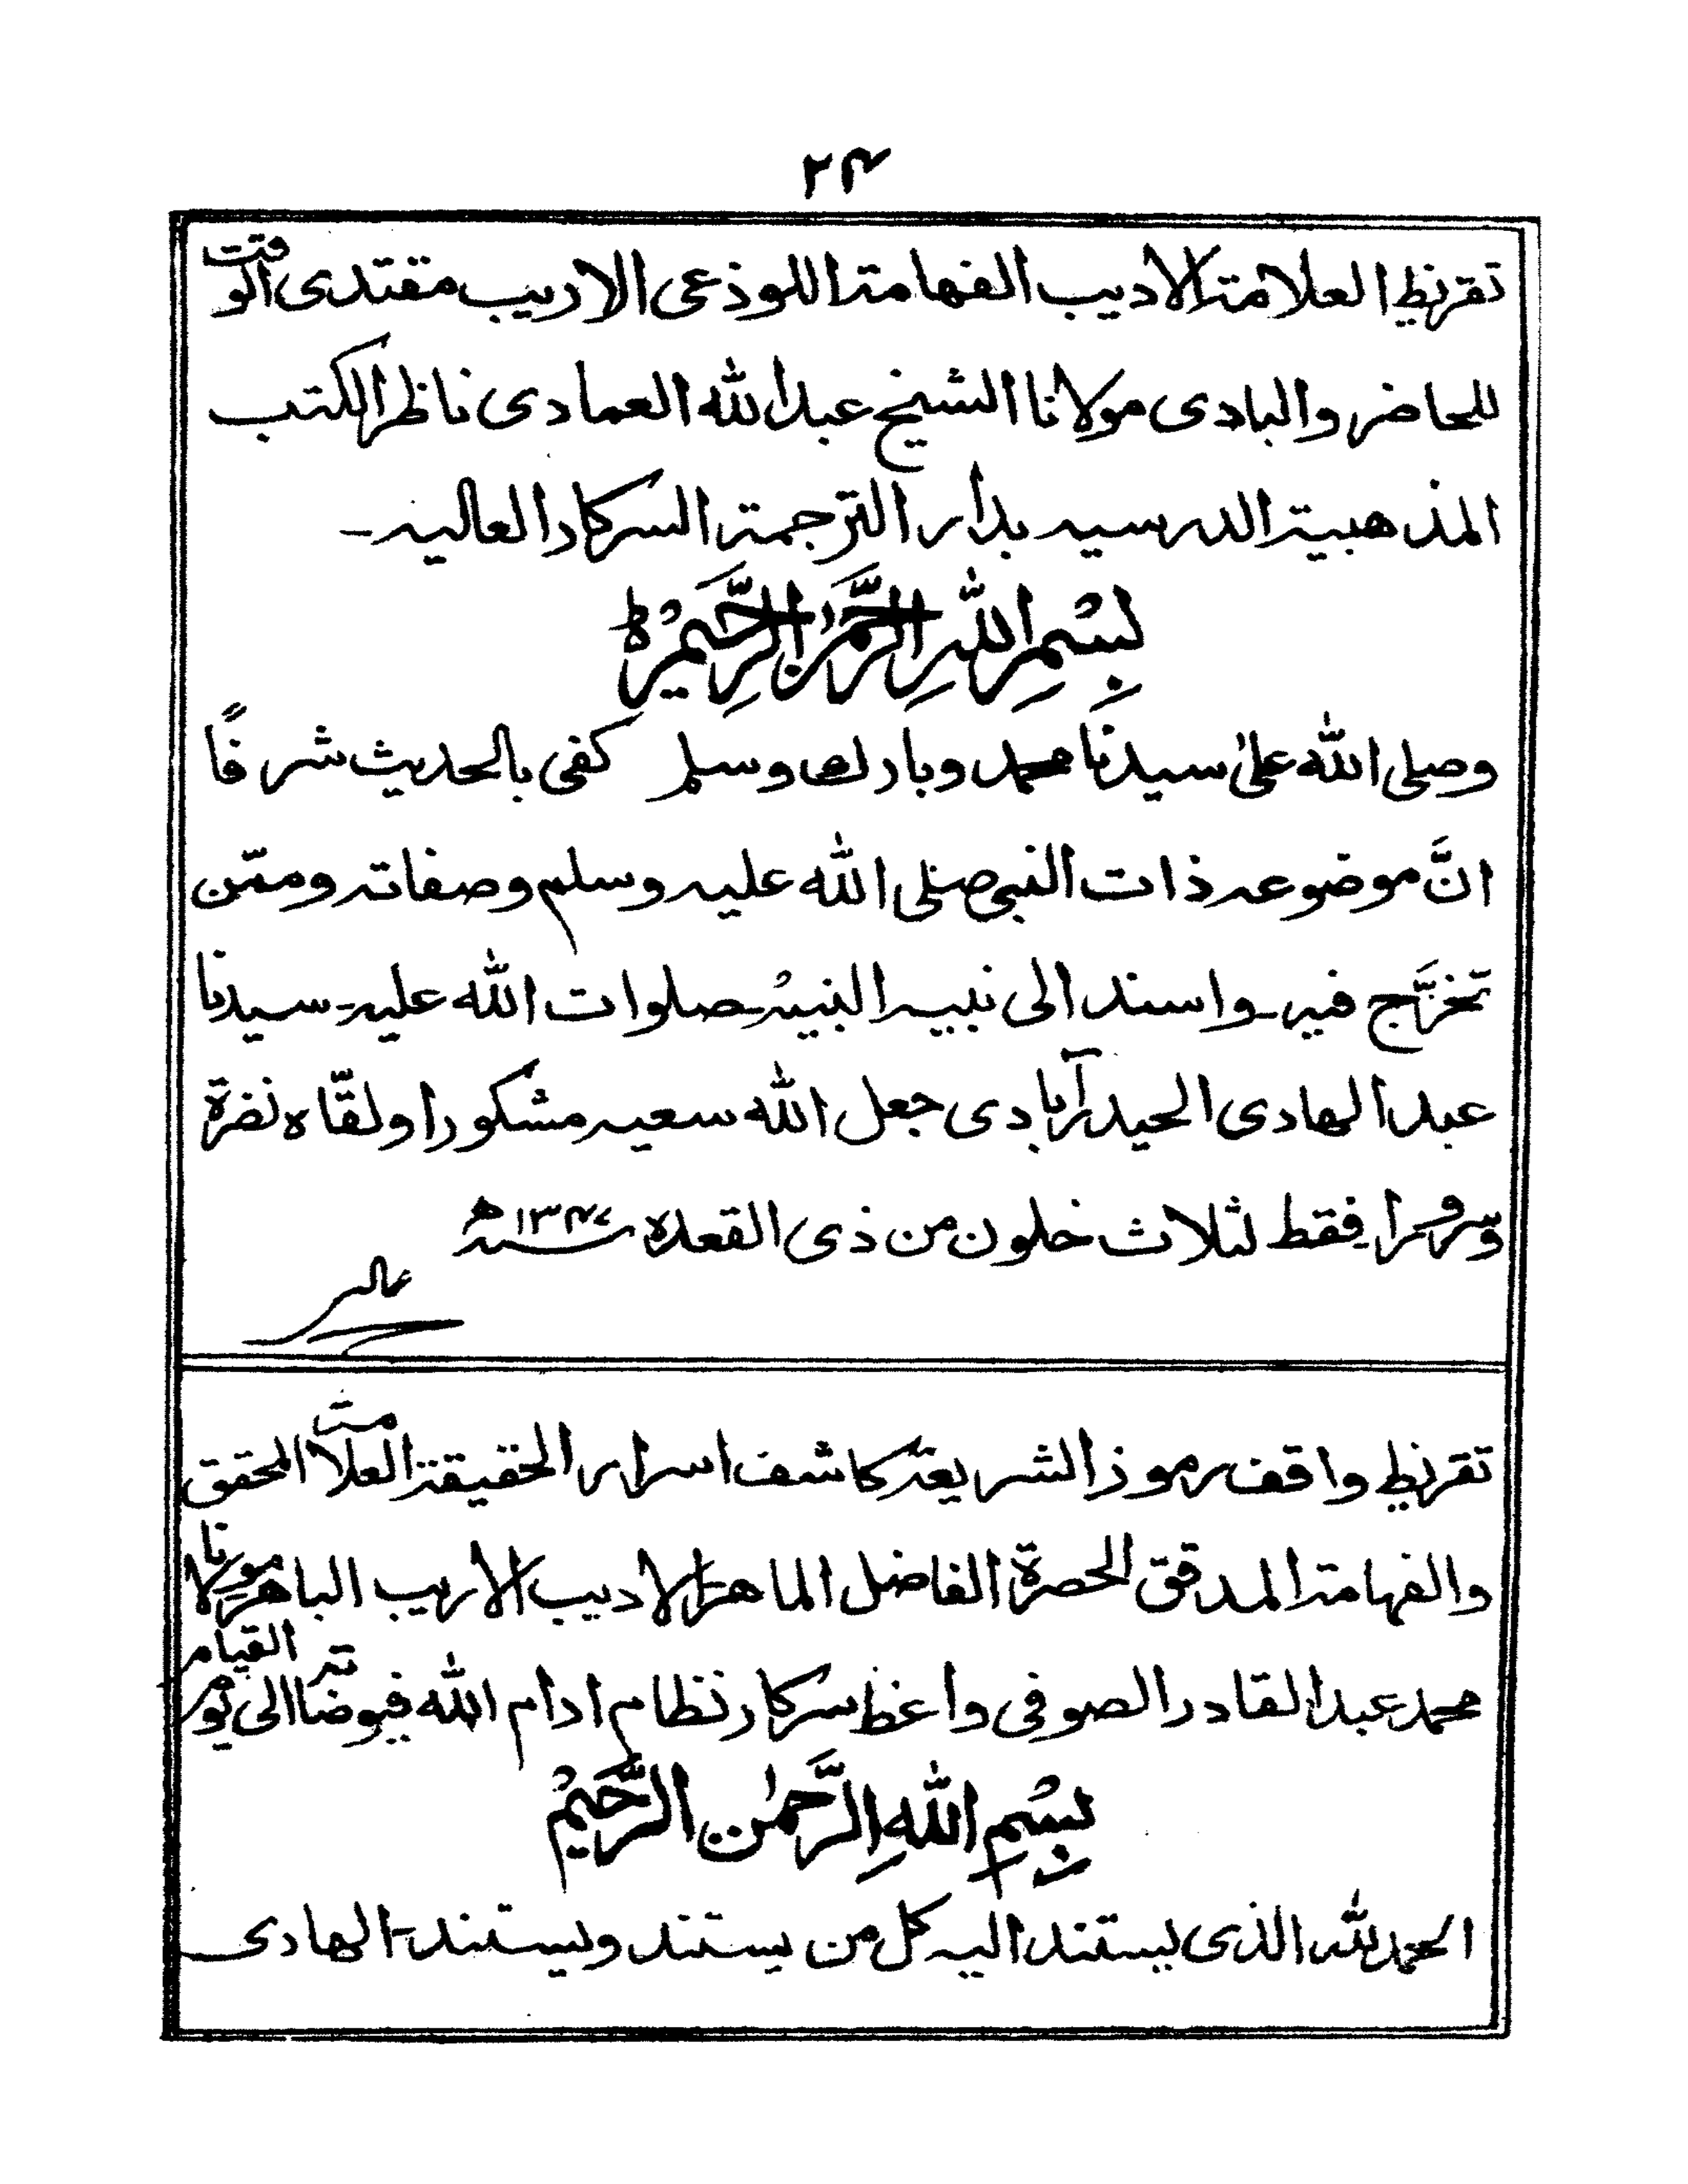 ۲۴
تقريظ العلامة الاديب الفهامة اللوذعى الاريب مقتدى الوقت
للحاضر والبادى مولانا الشيخ عبد الله العمادى ناظر الكتب
المذهبية الدرسيه بدار الترجمة السركار العاليه ۔
بِسْمِ اللّٰهِ الرَّحْمٰنِ الرَّحِيْمِ ہ
وصلى الله على سيدنا محمد وبارك وسلم كفى بالحديث شرفًا
انَّ موضوعه ذات النبى صلى الله عليه وسلم وصفاته وممّن
تخرَّج فيه ۔ واسند الى نبيه النبيه ۔ صلوات الله عليه ۔ سيدنا
عبد الهادى الحيدر آبادى جعل الله سعيه مشكورا ولقّاه نضرة
وّسرورا ۔ فقط لثلاث خلون من ذى القعده سنه ۱۳۴۷ ھ
تقريظ واقف رموز الشريعة كاشف اسرار الحقيقة العلامة المحقق
والفهامة المدقق الحصرة الفاضل الماهر الاديب الاريب الباهر مولانا
محمد عبد القادر الصوفى واعظ سركار نظام ادام الله فيوضاته الى يوم القيام
بِسْمِ اللّٰهِ الرَّحْمٰنِ الرَّحِيْمْ
الحمد لله الذى يستند اليه كل من يستند ويستند ۔ الهادى